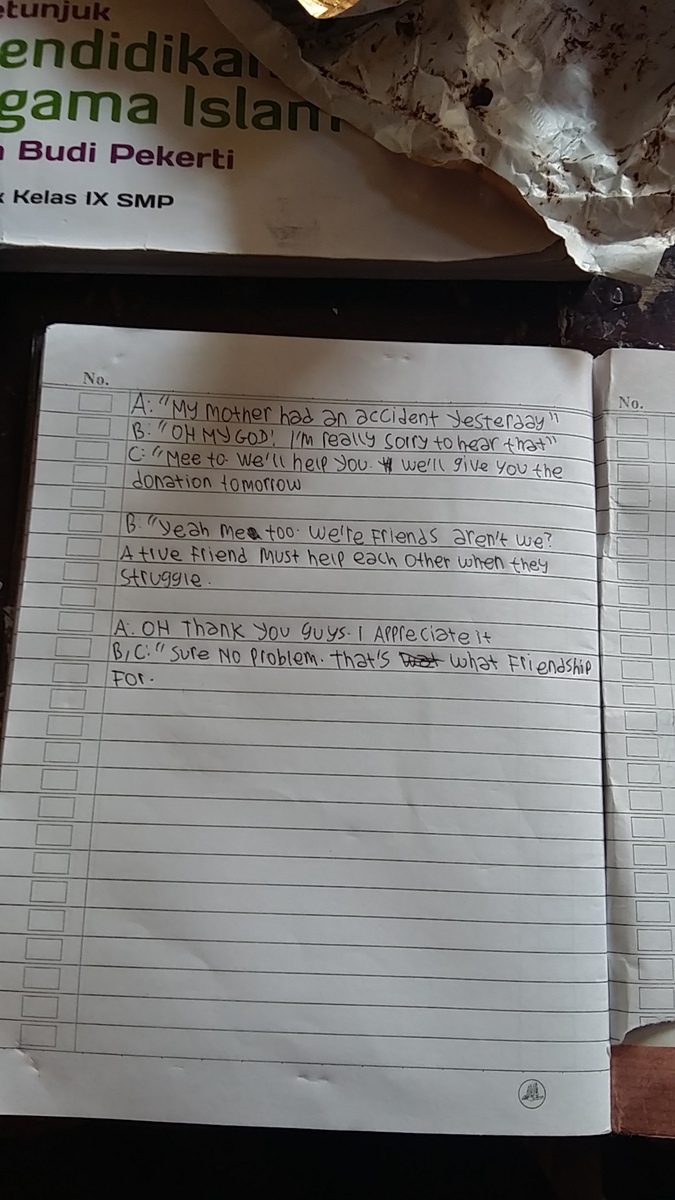 etunjuk
endidikan
gama Islam
n Budi Pekerti
k Kelas IX SMP
No.
No.
A: "My mother had an accident yesterday"
B: "OH MY GOD! I'm really sorry to hear that"
C: "Mee to. We'll help you. we'll give you the
donation tomorrow
B: "Yeah Me too. We're Friends aren't we?
A true Friend Must help each other when they
Struggle.
A: OH Thank you guys. I Appreciate it
B, C: "Sure NO Problem. That's what Friendship
For.